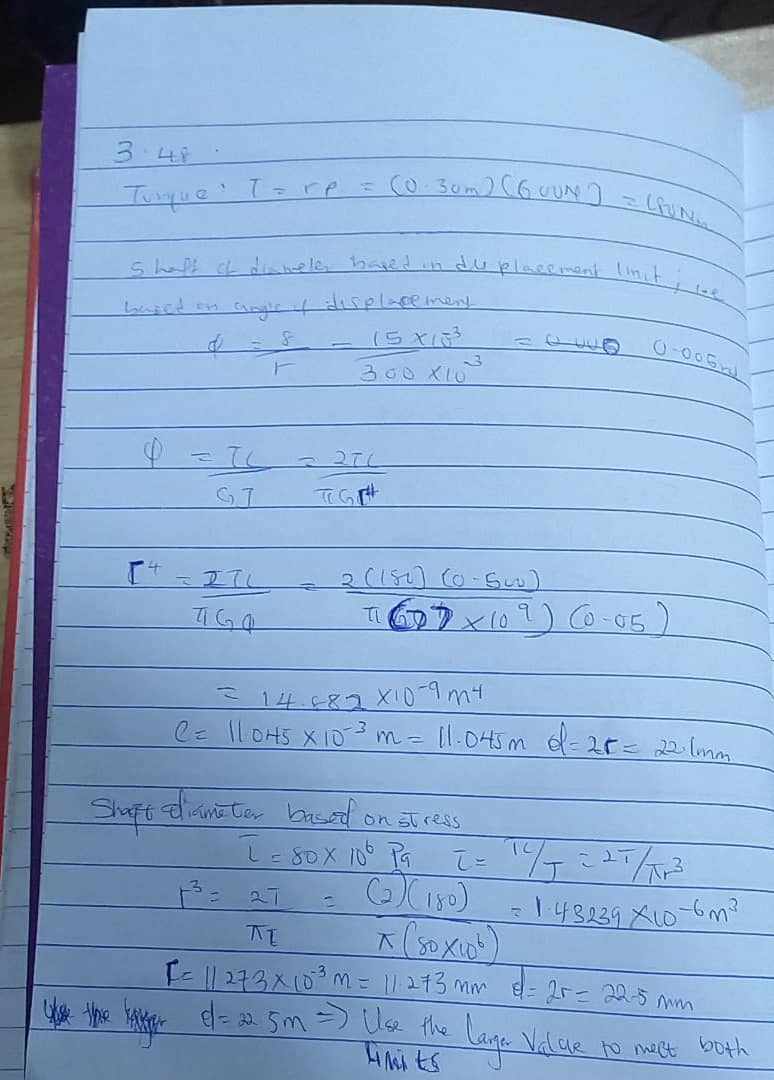 3.48.
Torque: T = rP = (0.30m)(600N) = 180Nm
Shaft of diameter based on displacement limit, i.e
based on angle of displacement
φ = δ/r = 15 x 10^-3 / 300 x 10^-3 = 0.005rad
φ = TL/GJ = 2TL/πGr^4
r^4 = 2TL/πGφ = 2(180)(0.500) / π(77 x 10^9)(0.05)
= 14.882 x 10^-9 m^4
c = 11045 x 10^-3 m = 11.045m d = 2r = 22.1mm
Shaft diameter based on stress
τ = 80 x 10^6 Pa τ = Tc/J = 2T/πr^3
r^3 = 2T/πτ = (2)(180) / π(80x10^6) = 1.43239 x 10^-6 m^3
r = 11273 x 10^-3 m = 11.273 mm d = 2r = 22.5 mm
d = 22 5m => Use the Larger Value to meet both
limits